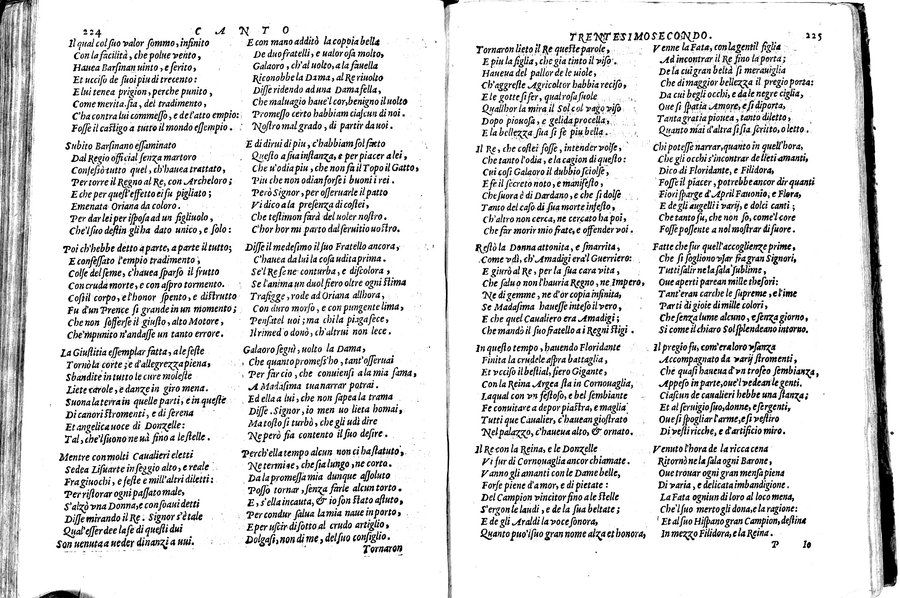 224
CANTO
Il qual col suo valor sommo, infinito
Con la facilità, che polue vento,
Hauea Barsinan uinto, e ferito,
Et ucciso de suoi piu di trecento:
E lui tenea prigion, perche punito,
Come merita sia, del tradimento,
C'ha contra lui commesso, e de l'atto empio:
Fosse il castigo a tutto il mondo essempio.
Subito Barsinano essaminato
Dal Regio official senza martoro
Confessò tutto quel, c'hauea trattato,
Per torre il Regno al Re, con Archeloro;
E che per quest'effetto ei fu pigliato;
E menata Oriana da coloro.
Per darlei per isposa ad un figliuolo,
Che'l suo destin gli ha dato unico, e solo:
Poi c'hebbe detto a parte, a parte il tutto;
E confessato l'empio tradimento,
Colse del seme, c'hauea sparso il frutto
Con cruda morte, e con aspro tormento.
Così il corpo, e l'honor spento, e distrutto
Fu d'un Prence sì grande in un momento;
Che non sofferse il giusto, alto Motore,
Che'mpunito n'andasse un tanto errore.
La Giustitia essemplar fatta, a le feste
Tornò la corte; e d'allegrezza piena,
Sbandite in tutto le cure moleste
Liete carole, e danze in giro mena.
Suona la terra in quelle parti, e in queste
Di canori stromenti, e di serena
Et angelica uoce di Donzelle:
Tal, che'l suono ne uà fino a le stelle.
Mentre con molti Caualieri eletti
Sedea Lisuarte in seggio alto, e reale
Fra giuochi, e feste e mill'altri diletti:
Per ristorar ogni passato male,
S'alzò vna Donna, e con soaui detti
Disse mirando il Re. Signor s'è tale
Qual'esser dee la fe di questi dui
Son uenuta a ueder dinanzi a uui.
E con mano additò la coppia bella
De duo fratelli, e ualorosa molto,
Galaoro, ch'al uolto, a la fauella
Riconobbe la Dama, al Re riuolto
Disse ridendo ad una Damasella,
Che maluagio haue'l cor, benigno il uolto
Promesso certo habbiam ciascun di noi.
Nostro mal grado, di partir da uoi.
E di dirui di piu, c'habbiam sol fatto
Questo a sua instanza, e per piacer a lei,
Che u'odia piu, che non fa il Topo il Gatto,
Piu che non odian forse i buoni i rei.
Però Signor, per osseruarle il patto
Vi dico a la presenza di costei,
Che testimon farà del uoler nostro.
C'hor hor mi parto dal seruitio uostro.
Disse il medesimo il suo Fratello ancora,
C'hauea da lui la cosa udita prima.
Se'l Re se ne conturba, e discolora,
Se l'anima un duol fiero oltre ogni stima
Trafigge, rode ad Oriana allhora,
Con duro morso, e con pungente lima,
Pensatel uoi; ma chi la piaga fece,
Il rimedio donò, ch'altrui non lece.
Galaoro seguì, uolto la Dama,
Che quanto promess'ho, tant'osseruai
Per far ciò, che conuiensi a la mia fama,
A Madasima tua narrar potrai.
Ed ella a lui, che non sapea la trama
Disse. Signor, io men uo lieta homai,
Ma tosto si turbò, che gli udì dire
Ne però fia contento il suo desire.
Perch'ella tempo alcun non ci ha statuito,
Ne termine, che sia lungo, ne corto.
Da la promessa mia dunque assoluto
Posso tornar, senza farle alcun torto.
E, s'ella incauta, & io son stato astuto,
Per condur salua la mia naue in porto,
E per uscir di sotto al crudo artiglio,
Dolgasi, non di me, del suo consiglio.
Tornaron
TRENTESIMOSECONDO.
225
Tornaron lieto il Re queste parole,
E piu la figlia, che gia tinto il viso
Haueua del pallor de le uiole,
Ch'aggreste Agricoltor habbia reciso,
E le gotte si fer, qual rosa suole
Qualhor la mira il Sol col vago viso
Dopo piouosa, e gelida procella,
E la bellezza sua si fe piu bella.
Il Re, che costei fosse, intender volse,
Che tanto l'odia, e la cagion di questo:
Cui così Galaoro il dubbio sciolse,
E fe il secreto noto, e manifesto,
Che suora è di Dardano, e che si dolse
Tanto del caso di sua morte infesto,
Ch'altro non cerca, ne cercato ha poi,
Che far morir mio frate, e offender voi.
Restò la Donna attonita, e smarrita,
Come vdì, ch'Amadigi era'l Guerriero:
E giurò al Re, per la sua cara vita,
Che saluo non l'hauria Regno, ne Impero,
Ne di gemme, ne d'or copia infinita,
Se Madasima hauesse inteso il vero,
E che quel Caualiero era Amadigi;
Che mandò il suo fratello a i Regni stigi.
In questo tempo, hauendo Floridante
Finita la crudele aspra battaglia,
Et vcciso il bestial, fiero Gigante,
Con la Reina Argea sta in Cornouaglia,
La qual con vn festoso, e bel sembiante
Fe conuitare a depor piastra, e maglia
Tutti que Caualier, c'hauean giostrato
Nel palazzo, c'haueua alto, & ornato.
Il Re con la Reina, e le Donzelle
Vi fur di Cornouaglia ancor chiamate.
Vanno gli amanti con le Dame belle,
Forse piene d'amor, e di pietate:
Del Campion vincitor fino a le stelle
S'ergon le laudi, e de la sua beltate;
E de gli Araldi la voce sonora,
Quanto puo'l suo gran nome alza et honora,
Venne la Fata, con la gentil figlia
Ad incontrar il Re fino la porta;
De la cui gran beltà si merauiglia
Che di maggior bellezza il pregio porta:
Da cui begli occhi, e da le negre ciglia,
Oue si spatia Amore, e si diporta,
Tanta gratia pioueua, tanto diletto,
Quanto mai d'altra si sia scritto, o letto.
Chi potesse narrar, quanto in quell'hora,
Che gli occhi s'incontrar de lieti amanti,
Dico di Floridante, e Filidora,
Fosse il piacer, potrebbe ancor dir quanti
Fiori sparge d'April Fauonio, e Flora,
E de gli augelli i varij, e dolci canti;
Che tanto fu, che non so, com'el core
Fosse possente a nol mostrar di fuore.
Fatte che fur quell'accoglienze prime,
Che si sogliono vsar fra gran Signori,
Tutti salir ne la sala sublime,
Oue aperti parean mille thesori:
Tant'eran carche le supreme, e l'ime
Parti di gioie di mille colori,
Che senza lume alcuno, e senza giorno,
Si come il chiaro Sol splendeano intorno.
Il pregio fu, com'era lor vsanza
Accompagnato da varij stromenti,
Che quasi haueua d'vn trofeo sembianza,
Appeso in parte, oue'l vedean le genti.
Ciascun de caualieri hebbe una stanza;
Et al seruigio suo, donne, e sergenti,
Oue si spogliar l'arme, e si vestiro
Di vesti ricche, e d'artificio miro.
Venuto l'hora de la ricca cena
Ritornò ne la sala ogni Barone,
Oue trouar ogni gran mensa piena
Di varia, e delicata imbandigione.
La Fata ogniun di loro al loco mena,
Che'l suo merto gli dona, e la ragione:
Et al suo Hispano gran Campion, destina
In mezzo Filidora, e la Reina.
P
Io